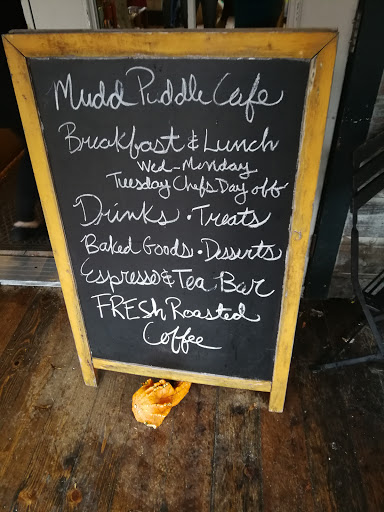 Mudd Puddle Cafe
Breakfast & Lunch
Wed-Monday
Tuesday Chefs Day off
Drinks • Treats
Baked Goods • Desserts
Espresso & Tea Bar
FRESh Roasted
Coffee